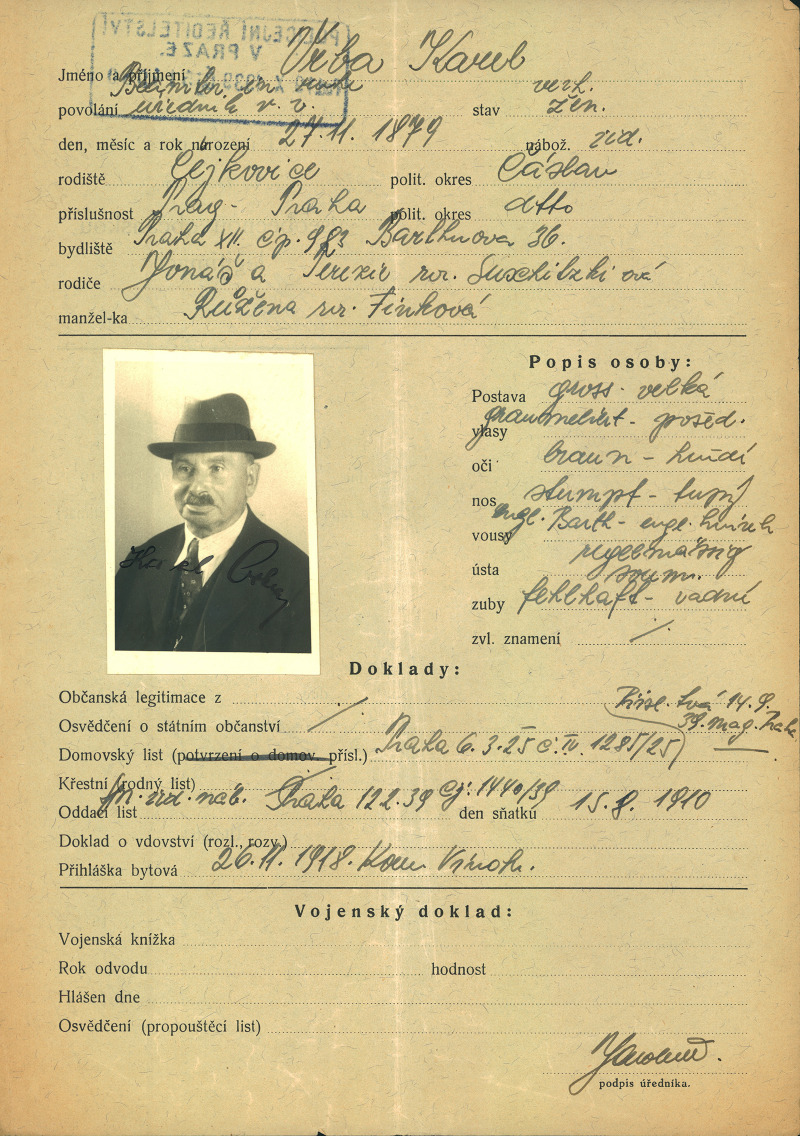 POLICEJNÍ ŘEDITELSTVÍ
V PRAZE.
Jméno a příjmení Vrba Karel
Beamter im Ruhe verh.
povolání úředník v. v. stav žen.
den, měsíc a rok narození 27.11. 1879 nábož. žid.
rodiště Cejkovice polit. okres Čáslav
příslušnost Prag - Praha polit. okres dtto
bydliště Praha XII. čp. 983 Barthuova 36.
rodiče Jonáš a Terezie roz. Suschitzki ová
manžel-ka Růžena roz. Finková
Popis osoby:
Postava gross - velká
vlasy graumeliert - prošed.
oči braun - hnědí
nos stumpf - tupý
vousy engl. Barth - engl.
ústa regelmässig
soum.
zuby fehlhaft - vadní
zvl. znamení /.
Karel Vrba
Doklady:
Občanská legitimace z
Osvědčení o státním občanství
14.9.
39. mag. Praha
Domovský list (potvrzení o domov. přísl.) Praha 6.3.25 č. IV 1285/25
Křestní (rodný list)
Oddací list žid. náb. Praha 12.2.39 čj: 1440/39 den sňatku 15.8. 1910
Doklad o vdovství (rozl., rozv.)
Přihláška bytová 26.11. 1918. Kom. Vinoh.
Vojenský doklad:
Vojenská knížka
Rok odvodu hodnost
Hlášen dne
Osvědčení (propouštěcí list)
podpis úředníka.